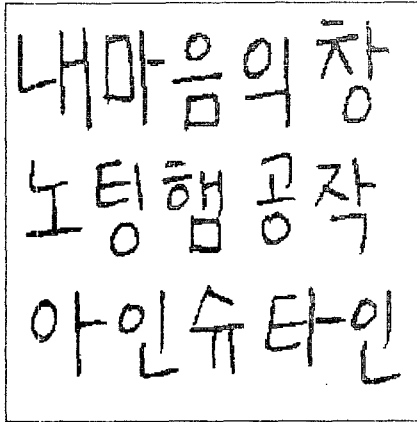 내마음의창
노팅햄공작
아인슈타인